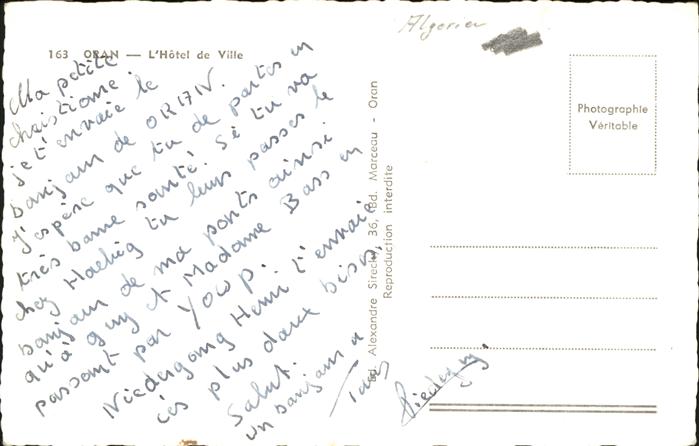 Algerien
163 ORAN — L'Hôtel de Ville
Photographie
Véritable
Ma petite
christiane.
je t'envoie le
banjour de ORAN.
J'espère que tu de partes en
très banne santé. Si tu va
chez tu leurs passes le
banjour de ma parts ainsi
qu'à guy et Madame Bass en
passant par Youp.
Niedergang Henri t'envoie
ces plus daux bisas,
Salut.
un banjour a
Ed. Alexandre Sirecky, 36, Bd. Marceau - Oran
Reproduction interdite